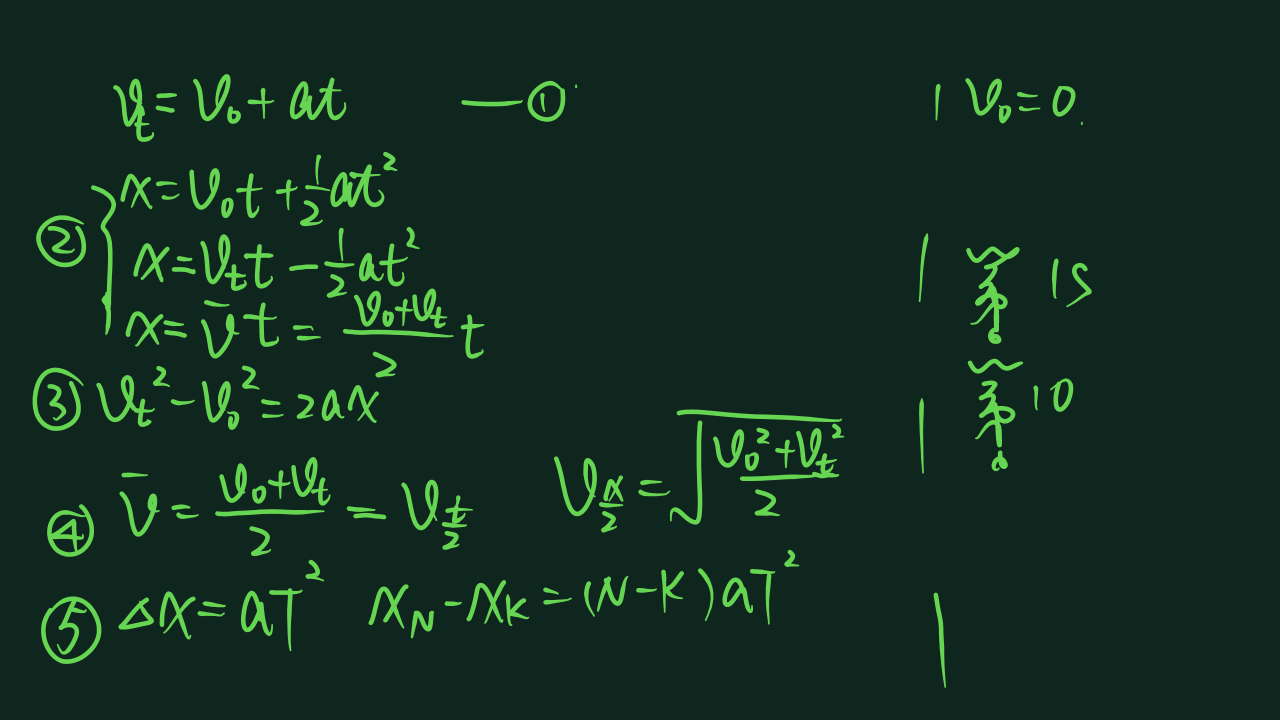 vₜ = v₀ + at —①
② x = v₀t + ½at²
x = vₜt − ½at²
x = v̄t = (v₀+vₜ)/2 t
③ vₜ² − v₀² = 2ax
④ v̄ = (v₀+vₜ)/2 = v_{t/2} v_{x/2} = √((v₀²+vₜ²)/2)
⑤ △x = aT² x_N − x_K = (N−K)aT²
| v₀ = 0.
第 1s
第 10